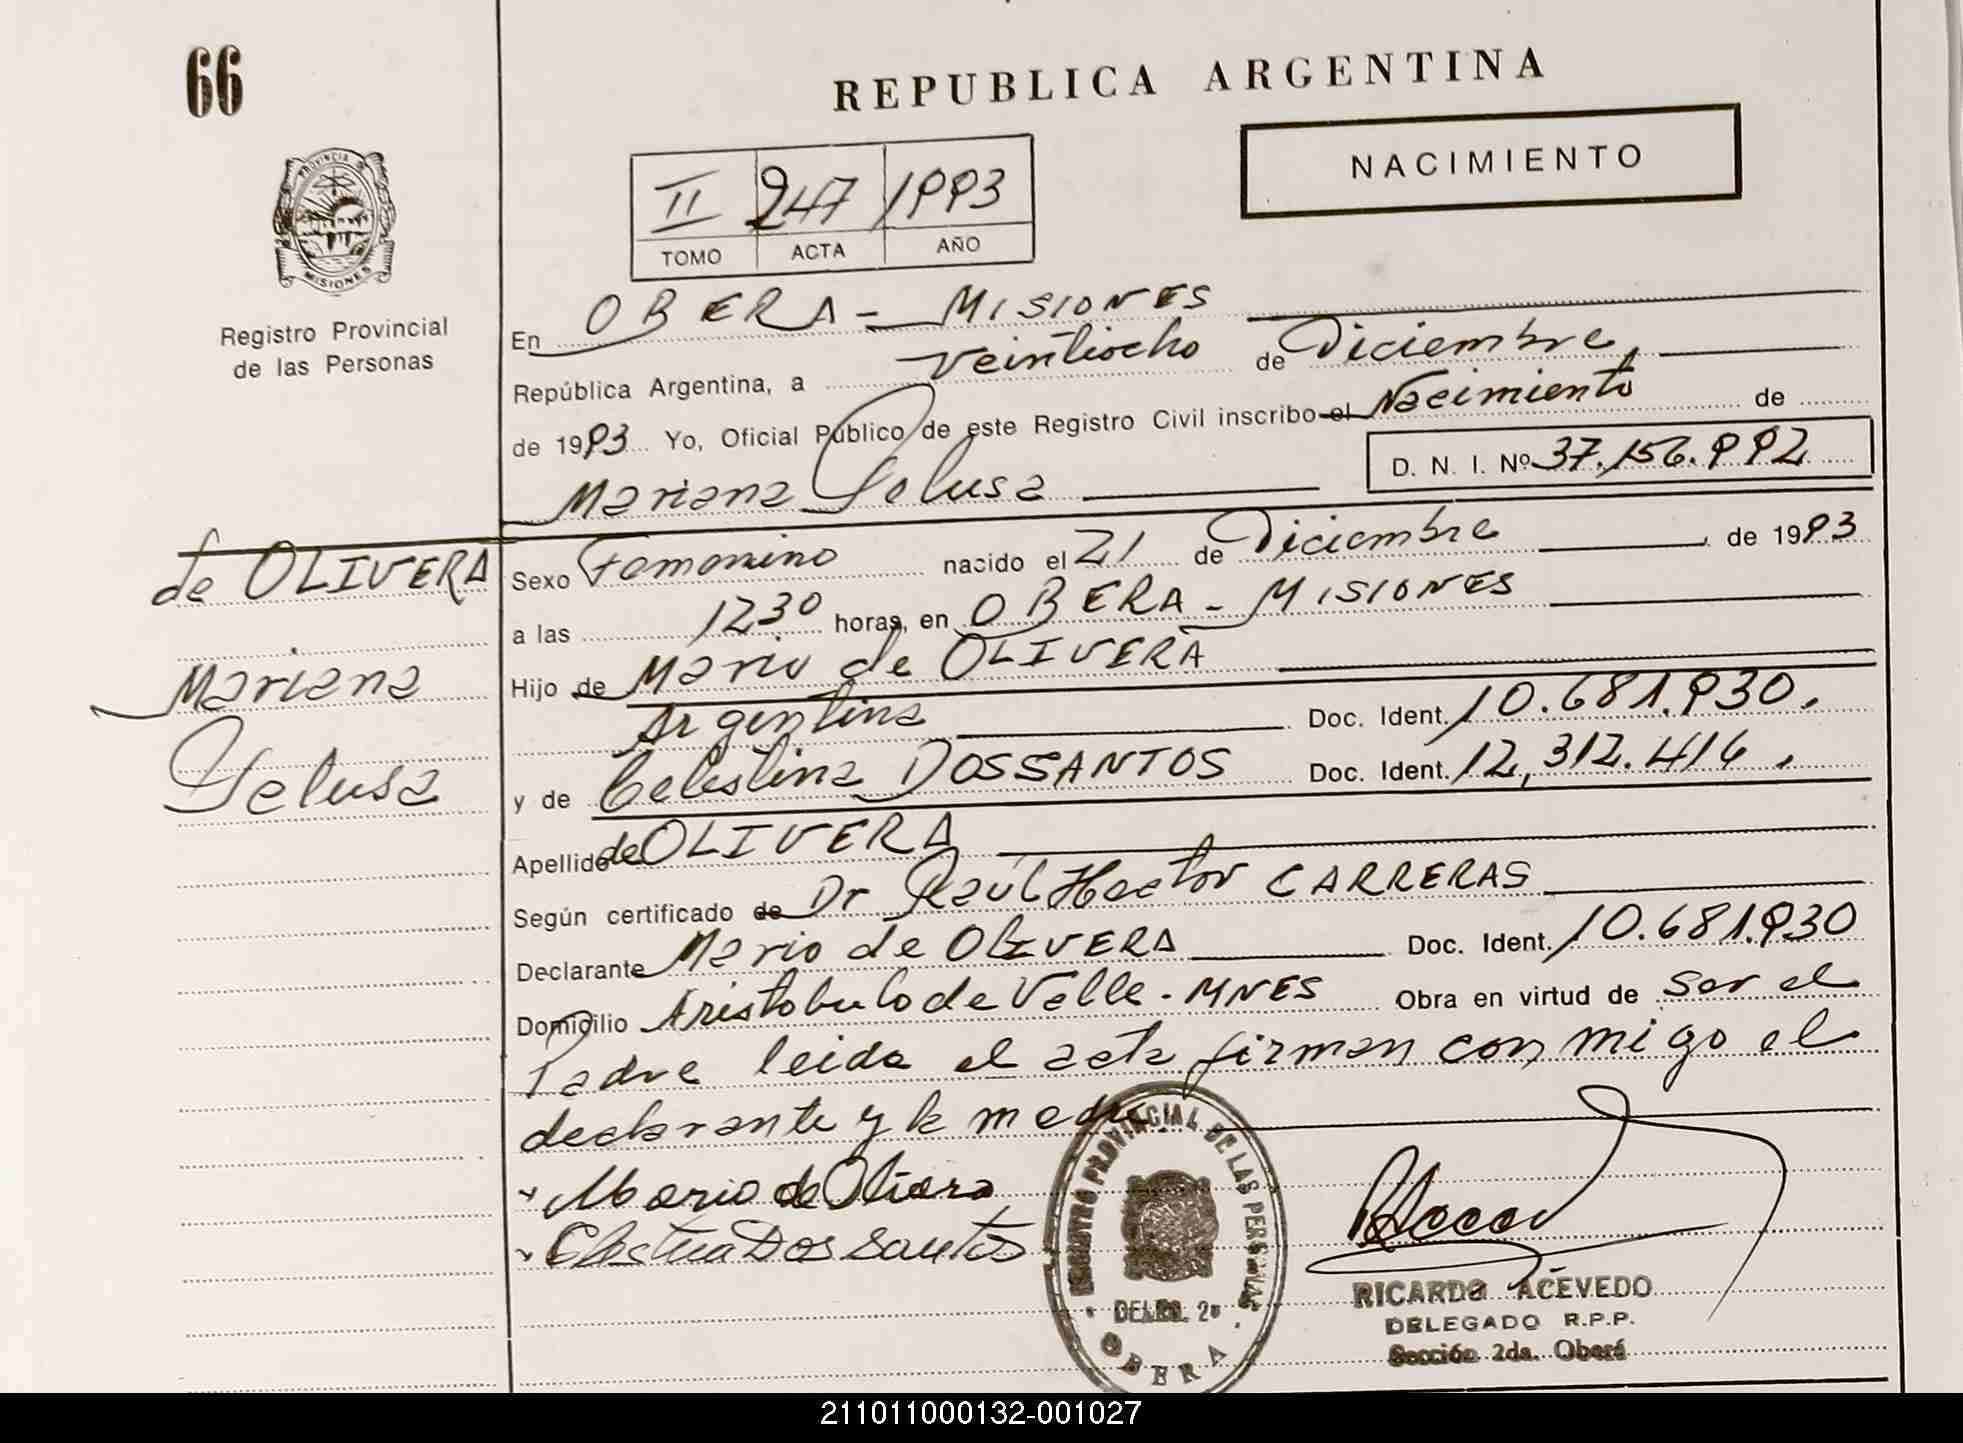 66
REPUBLICA ARGENTINA
NACIMIENTO
II 247 1993
TOMO ACTA AÑO
PROVINCIA DE MISIONES
Registro Provincial
de las Personas
En OBERA - MISIONES
República Argentina, a veintiocho de Diciembre,
de 1993 Yo, Oficial Público de este Registro Civil inscribo el Nacimiento de
D. N. I. Nº 37.156.992
Mariana Yelusa
de OLIVERA
Mariana
Yelusa
Sexo Femenino nacido el 21 de Diciembre de 1993
a las 1230 horas, en OBERA - MISIONES
Hijo de Mario de OLIVERA
Argentina Doc. Ident. 10.681.930.
y de Celestina DOSSANTOS Doc. Ident. 12,312.414.
Apellido de OLIVERA
Según certificado de Dr Raúl Hector CARRERAS
Declarante Mario de OLIVERA Doc. Ident. 10.681.930
Domicilio Aristobulo de Valle - MNES Obra en virtud de ser el
Padre leida el acta firman con migo el
declarante y la madre
Mario de Olivera
Dos santos
REGISTRO PROVINCIAL DE LAS PERSONAS
DELEG. 2º
OBERA
RICARDO ACEVEDO
DELEGADO R.P.P.
Sección 2da. Oberá
211011000132-001027